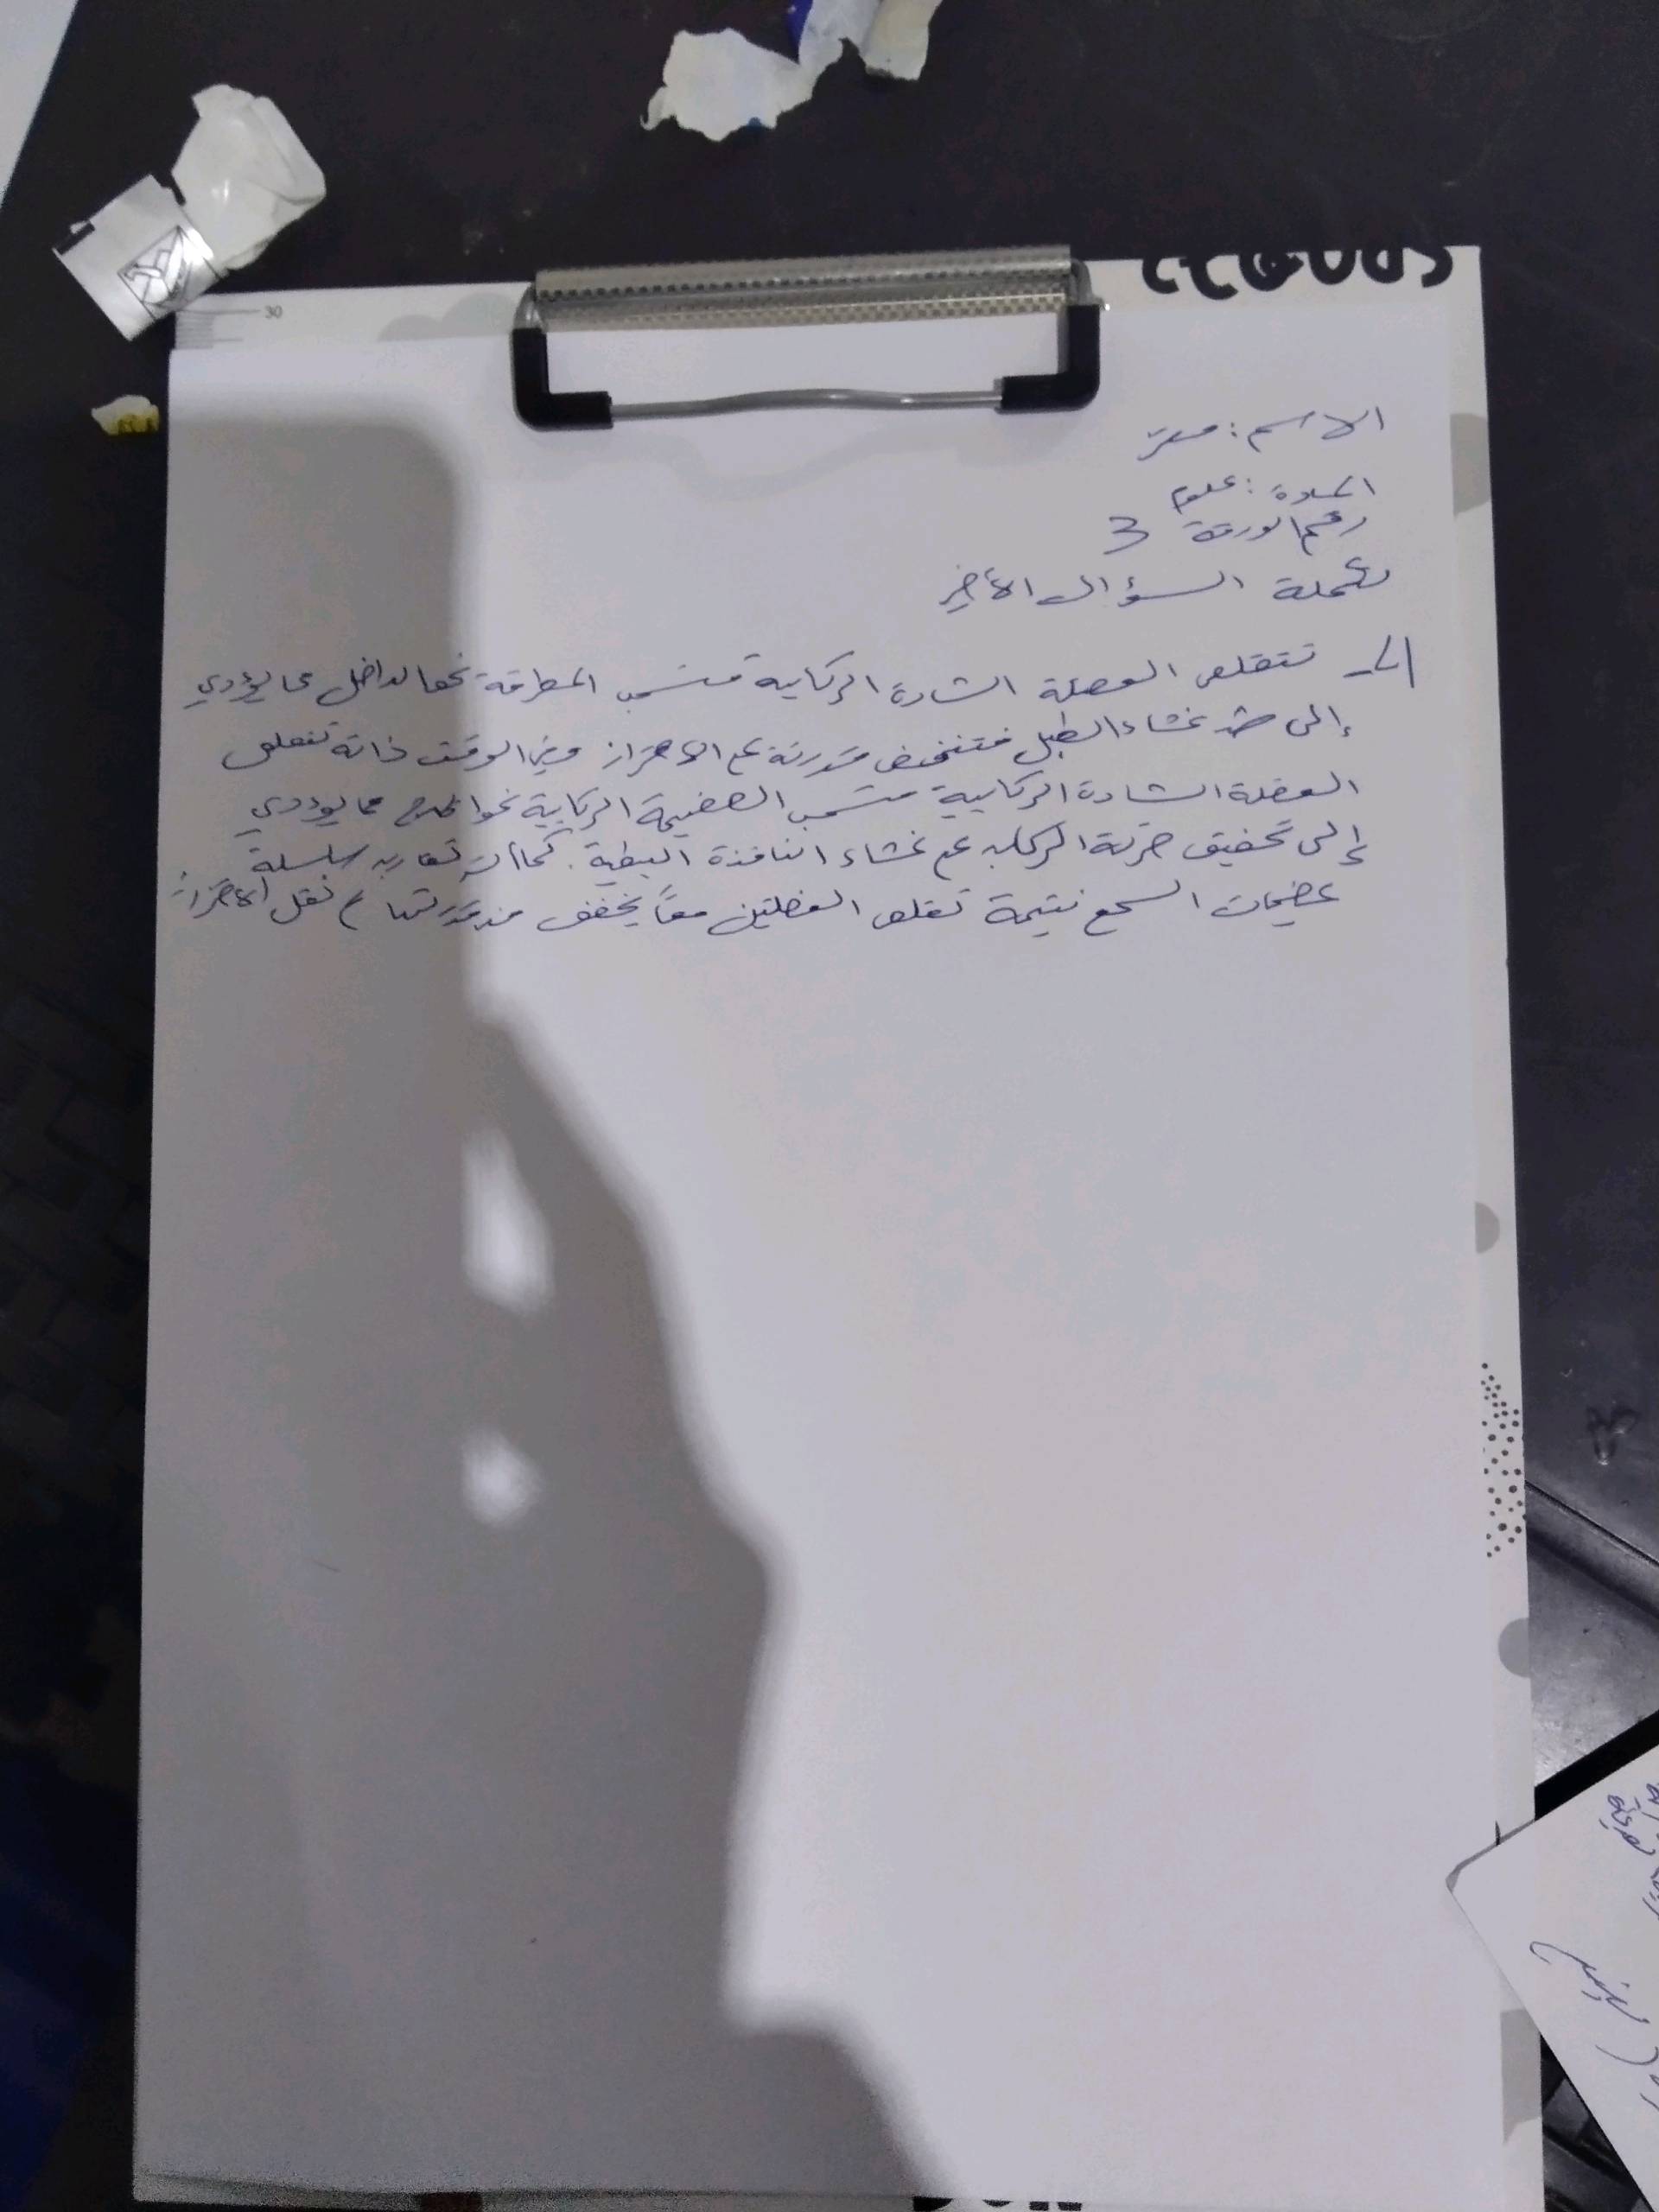 30
الاسم: معتز
المادة: علوم
رقم الورقة 3
تكملة السؤال الأخير
تتقلص العضلة الشادة الركابية فتسحب المطرقة نحو الداخل مما يؤدي
إلى شد غشاء الطبل فتنخفض قدرته على الاهتزاز وفي الوقت ذاته تتقلص
العضلة الشادة الركابية فتسحب العضيمة الركابية نحو الخارج مما يؤدي
إلى تخفيف ضربة الركاب على غشاء النافذة البيضية. كما أن تقارب سلسلة
عضيمات السمع نتيجة تقلص العضلتين معاً يخفف من قدرتها على نقل الاهتزاز